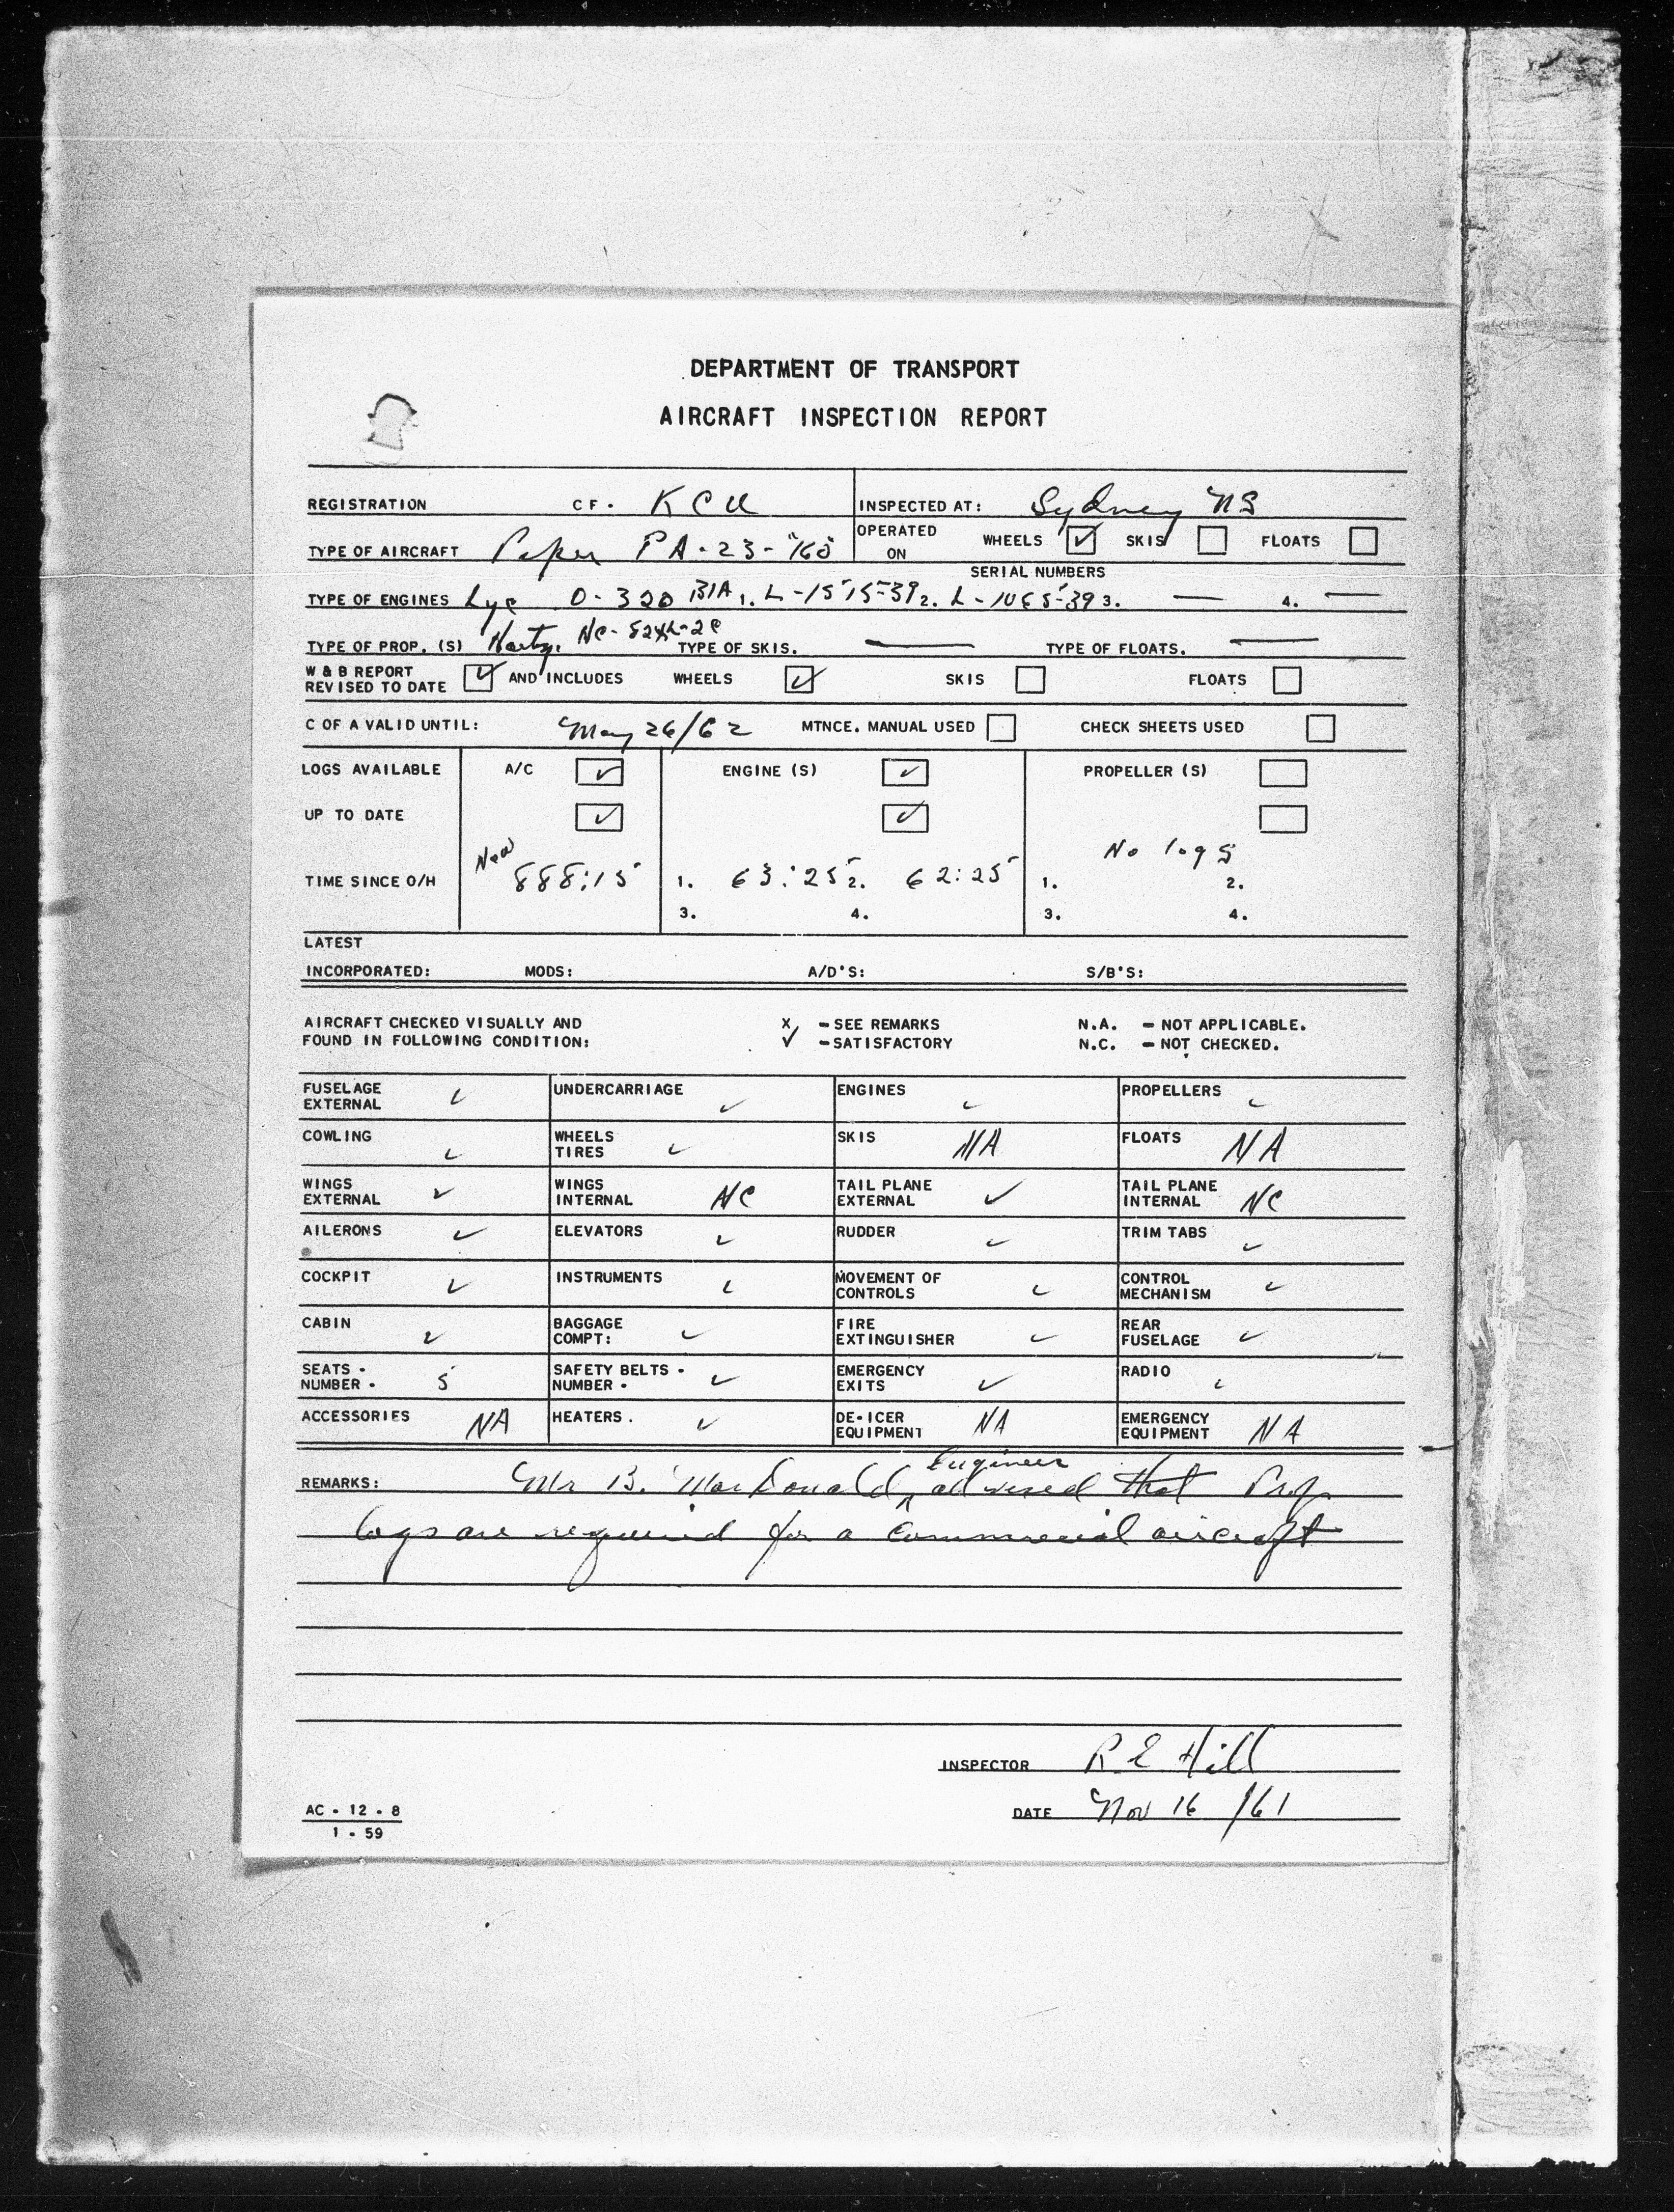 DEPARTMENT OF TRANSPORT
AIRCRAFT INSPECTION REPORT
REGISTRATION CF. KCU INSPECTED AT: Sydney NS
TYPE OF AIRCRAFT Piper PA-23-160 OPERATED ON WHEELS ✓ SKIS FLOATS
SERIAL NUMBERS
TYPE OF ENGINES Lyc O-320 B1A 1. L-1515-39 2. L-1065-39 3. — 4. —
TYPE OF PROP. (S) Hartz. TYPE OF SKIS. — TYPE OF FLOATS. —
W & B REPORT REVISED TO DATE ✓ AND INCLUDES WHEELS ✓ SKIS FLOATS
C OF A VALID UNTIL: May 26/62 MTNCE. MANUAL USED CHECK SHEETS USED
LOGS AVAILABLE A/C ✓ ENGINE (S) ✓ PROPELLER (S)
UP TO DATE ✓ ✓
No logs
TIME SINCE O/H New 888:15 1. 63:25 2. 62:25 1. 2.
3. 4. 3. 4.
LATEST
INCORPORATED: MODS: A/D'S: S/B'S:
AIRCRAFT CHECKED VISUALLY AND X - SEE REMARKS N.A. - NOT APPLICABLE.
FOUND IN FOLLOWING CONDITION: ✓ - SATISFACTORY N.C. - NOT CHECKED.
FUSELAGE EXTERNAL ✓ UNDERCARRIAGE ✓ ENGINES ✓ PROPELLERS ✓
COWLING ✓ WHEELS TIRES ✓ SKIS NA FLOATS NA
WINGS EXTERNAL ✓ WINGS INTERNAL NC TAIL PLANE EXTERNAL ✓ TAIL PLANE INTERNAL NC
AILERONS ✓ ELEVATORS ✓ RUDDER ✓ TRIM TABS ✓
COCKPIT ✓ INSTRUMENTS ✓ MOVEMENT OF CONTROLS ✓ CONTROL MECHANISM ✓
CABIN ✓ BAGGAGE COMPT: ✓ FIRE EXTINGUISHER ✓ REAR FUSELAGE ✓
SEATS - NUMBER - 5 SAFETY BELTS - NUMBER - ✓ EMERGENCY EXITS ✓ RADIO ✓
ACCESSORIES NA HEATERS. ✓ DE-ICER EQUIPMENT NA EMERGENCY EQUIPMENT NA
REMARKS: Mr B. MacDonald, Engineer advised that Prop
logs are required for a commercial aircraft
INSPECTOR R E Hill
DATE Nov 16/61
AC - 12 - 8
1 - 59